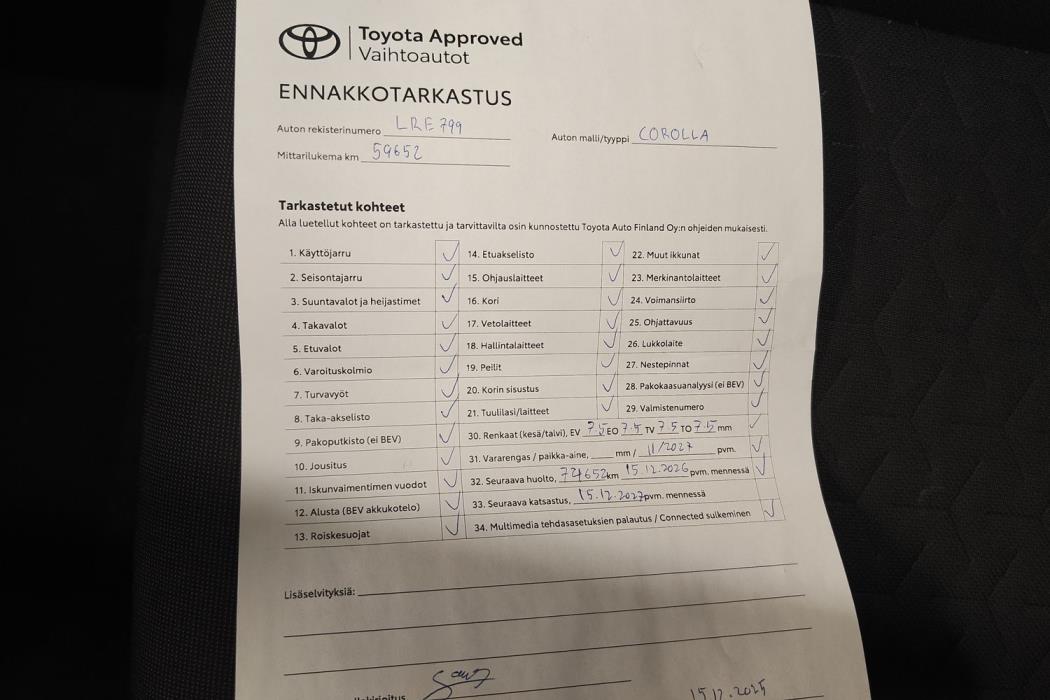 Toyota Approved
Vaihtoautot
ENNAKKOTARKASTUS
Auton rekisterinumero LRE799
Auton malli/tyyppi COROLLA
Mittarilukema km 59652
Tarkastetut kohteet
Alla luetellut kohteet on tarkastettu ja tarvittavilta osin kunnostettu Toyota Auto Finland Oy:n ohjeiden mukaisesti.
1. Käyttöjarru
2. Seisontajarru
3. Suuntavalot ja heijastimet
4. Takavalot
5. Etuvalot
6. Varoituskolmio
7. Turvavyöt
8. Taka-akselisto
9. Pakoputkisto (ei BEV)
10. Jousitus
11. Iskunvaimentimen vuodot
12. Alusta (BEV akkukotelo)
13. Roiskesuojat
14. Etuakselisto
15. Ohjauslaitteet
16. Kori
17. Vetolaitteet
18. Hallintalaitteet
19. Peilit
20. Korin sisustus
21. Tuulilasi/laitteet
22. Muut ikkunat
23. Merkinantolaitteet
24. Voimansiirto
25. Ohjattavuus
26. Lukkolaite
27. Nestepinnat
28. Pakokaasuanalyysi (ei BEV)
29. Valmistenumero
30. Renkaat (kesä/talvi), EV 7.5 EO 7.5 TV 7.5 TO 7.5 mm
31. Vararengas / paikka-aine, mm / 11/2027 pvm.
32. Seuraava huolto, km 15.12.2026 pvm. mennessä
33. Seuraava katsastus, 15.12.2027 pvm. mennessä
34. Multimedia tehdasasetuksien palautus / Connected sulkeminen
Lisäselvityksiä:
15.12.2025